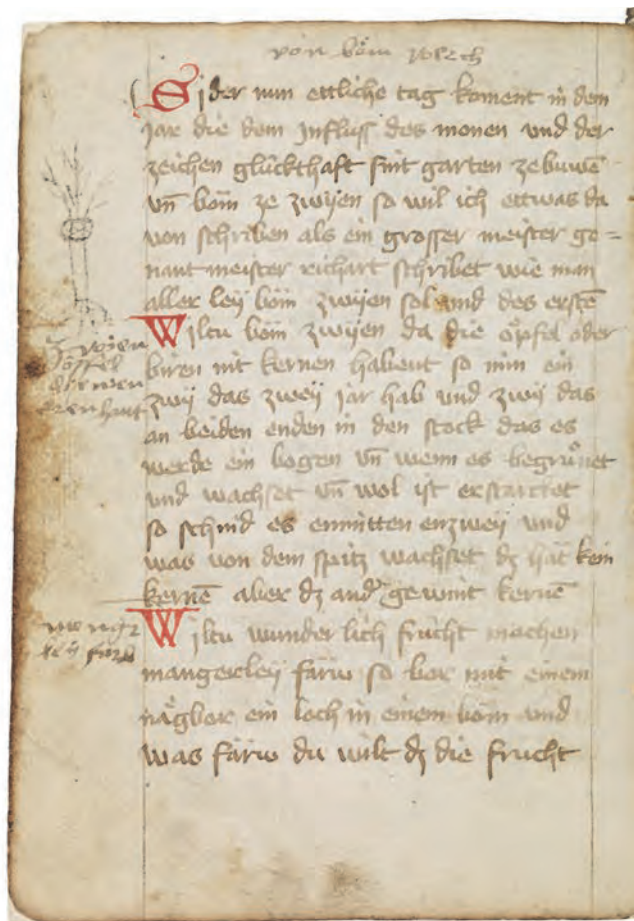 von böm
Sjder nun ettliche tag koment in dem
jar die dem jnfluss des monen vnd der
zeichen glückhafft sint garten ze buwē
vn̄ böm ze zwyen so wil ich ettwas da
von schriben als ein grosser meister ge=
nant meister richart schribet wie man
aller leÿ böm zwÿen sol vnd des erstē
Wiltu böm zwÿen da die öpfel oder
biren nit kernen habent so nim ein
zwÿ das zweÿ jar hab vnd zwÿ das
an beiden enden in den stock das es
werde ein bogen vn̄ wenn es begrůnet
vnd wachset vn̄ wol ist erstarcket
so schnid es enmitten enzweÿ vnd
was von dem spitz wachset dz hät kein
kernē aber dz and' gewint kernē
Wiltu wunderlich frucht machen
mangerleÿ färw so bor mit einem
nägbor ein loch in einem böm vnd
was färw du wilt dz die frucht
zwÿen
öpffel
mange
leÿ farb